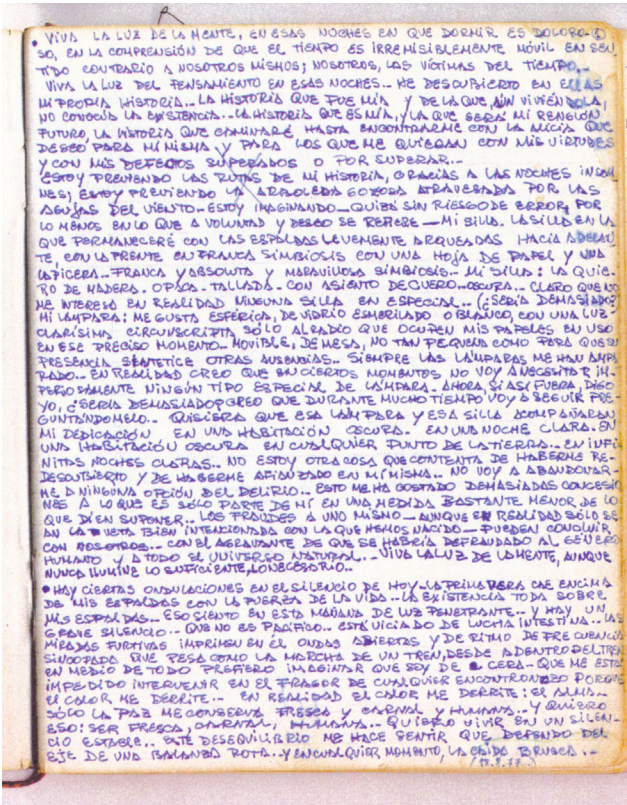 • VIVA LA LUZ DE LA MENTE, EN ESAS NOCHES EN QUE DORMIR ES DOLORO-
SO, EN LA COMPRENSIÓN DE QUE EL TIEMPO ES IRREMISIBLEMENTE MÓVIL EN SEN
TIDO CONTRARIO A NOSOTROS MISMOS; NOSOTROS, LAS VÍCTIMAS DEL TIEMPO...
VIVA LA LUZ DEL PENSAMIENTO EN ESAS NOCHES.. HE DESCUBIERTO EN ELLAS
MI PROPIA HISTORIA.. LA HISTORIA QUE FUE MÍA Y DE LA QUE, AÚN VIVIÉNDOLA,
NO CONOCÍA LA EXISTENCIA.. LA HISTORIA QUE ES MÍA, Y LA QUE SERÁ MI RENGLÓN
FUTURO, LA HISTORIA QUE CAMINARÉ HASTA ENCONTRARME CON LA ALICIA QUE
DESEO PARA MÍ MISMA Y PARA LOS QUE ME QUIERAN CON MIS VIRTUDES
Y CON MIS DEFECTOS SUPERADOS O POR SUPERAR...
ESTOY PREVIENDO LAS RUTAS DE MI HISTORIA, GRACIAS A LAS NOCHES INSOM
NES; ESTOY PREVIENDO LA ARBOLEDA GOZOSA ATRAVESADA POR LAS
AGUJAS DEL VIENTO.. ESTOY IMAGINANDO.. QUIZÁ SIN RIESGO DE ERROR, POR
LO MENOS EN LO QUE A VOLUNTAD Y DESEO SE REFIERE.. MI SILLA. LA SILLA EN LA
QUE PERMANECERÉ CON LAS ESPALDAS LEVEMENTE ARQUEADAS HACIA ADELAN
TE, CON LA FRENTE EN FRANCA SIMBIOSIS CON UNA HOJA DE PAPEL Y UNA
LAPICERA.. FRANCA Y ABSOLUTA Y MARAVILLOSA SIMBIOSIS.. MI SILLA: LA QUIE-
RO DE MADERA. OPACA. TALLADA. CON ASIENTO DE CUERO.. OSCURA.. CLARO QUE NO
ME INTERESA EN REALIDAD NINGUNA SILLA EN ESPECIAL.. (¿SERÍA DEMASIADO?)
MI LÁMPARA: ME GUSTA ESFÉRICA, DE VIDRIO ESMERILADO O BLANCO, CON UNA LUZ
CLARÍSIMA CIRCUNSCRIPTA SÓLO AL RADIO QUE OCUPEN MIS PAPELES EN USO
EN ESE PRECISO MOMENTO.. MOVIBLE, DE MESA, NO TAN PEQUEÑA COMO PARA QUE SU
PRESENCIA SINTETICE OTRAS AUSENCIAS.. SIEMPRE LAS LÁMPARAS ME HAN AMPA
RADO.. EN REALIDAD CREO QUE EN CIERTOS MOMENTOS NO VOY A NECESITAR IM-
PERIOSAMENTE NINGÚN TIPO ESPECIAL DE LÁMPARA. AHORA, SI ASÍ FUERA, DIGO
YO, ¿SERÍA DEMASIADO? CREO QUE DURANTE MUCHO TIEMPO VOY A SEGUIR PRE-
GUNTÁNDOMELO.. QUISIERA QUE ESA LÁMPARA Y ESA SILLA ACOMPAÑARAN
MI DEDICACIÓN EN UNA HABITACIÓN OSCURA. EN UNA NOCHE CLARA. EN
UNA HABITACIÓN OSCURA EN CUALQUIER PUNTO DE LA TIERRA.. EN INFI
NITAS NOCHES CLARAS.. NO ESTOY OTRA COSA QUE CONTENTA DE HABERME RE-
DESCUBIERTO Y DE HABERME AFIANZADO EN MÍ MISMA.. NO VOY A ABANDONAR-
ME A NINGUNA OPCIÓN DEL DELIRIO.. ESTO ME HA COSTADO DEMASIADAS CONCESIO
NES A LO QUE ES SÓLO PARTE DE MÍ EN UNA MEDIDA BASTANTE MENOR DE LO
QUE DIEN SUPONER.. LOS FRAUDES A UNO MISMO.. AUNQUE EN REALIDAD SÓLO SE
AN LA VETA BIEN INTENCIONADA CON LA QUE HEMOS NACIDO.. PUEDEN CONCLUIR
CON NOSOTROS... CON EL AGRAVANTE DE QUE SE HABRÍA DEFRAUDADO AL GÉNERO
HUMANO Y A TODO EL UNIVERSO NATURAL.. VIVA LA LUZ DE LA MENTE, AUNQUE
NUNCA ILUMINE LO SUFICIENTE, LO NECESARIO..
• HAY CIERTAS ONDULACIONES EN EL SILENCIO DE HOY. LA PRIMAVERA CAE ENCIMA
DE MIS ESPALDAS CON LA FUERZA DE LA VIDA.. LA EXISTENCIA TODA SOBRE
MIS ESPALDAS.. ESO SIENTO EN ESTA MAÑANA DE LUZ PENETRANTE.. Y HAY UN
GRAVE SILENCIO.. QUE NO ES PACÍFICO.. ESTÁ VICIADO DE LUCHA INTESTINA.. LAS
MIRADAS FURTIVAS IMPRIMEN EN ÉL ONDAS ABIERTAS Y DE RITMO DE FRECUENCIA
SINCOPADA QUE PESA COMO LA MARCHA DE UN TREN, DESDE ADENTRO DEL TREN
EN MEDIO DE TODO PREFIERO IMAGINAR QUE SOY DE CERA.. QUE ME ESTÁ
IMPEDIDO INTERVENIR EN EL FRAGOR DE CUALQUIER ENCONTRONAZO PORQUE
EL CALOR ME DERRITE.. EN REALIDAD EL CALOR ME DERRITE: EL ALMA..
SÓLO LA PAZ ME CONSERVA FRESCA Y CARNAL Y HUMANA.. Y QUIERO
ESO: SER FRESCA, CARNAL, HUMANA.. QUIERO VIVIR EN UN SILEN-
CIO ESTABLE.. ESTE DESEQUILIBRIO ME HACE SENTIR QUE DEPENDO DEL
EJE DE UNA BALANZA ROTA.. Y EN CUALQUIER MOMENTO, LA CAÍDA BRUSCA..-